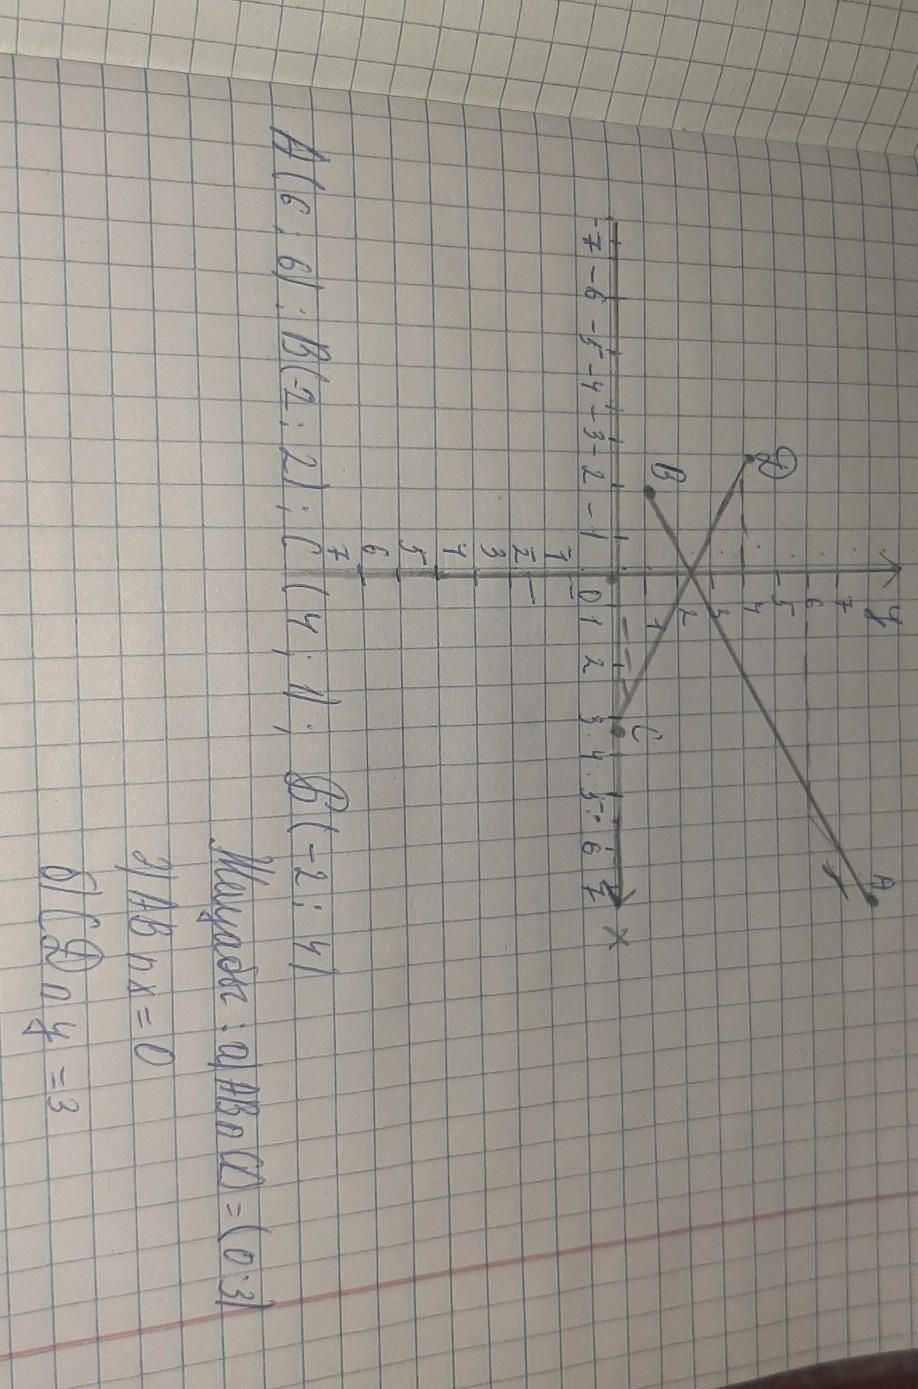 y
7
6
5
4
3
2
1
A
D
B
C
-7 -6 -5 -4 -3 -2 -1 0 1 2 3 4 5 6 7 x
1
2
3
4
5
6
7
A(6; 6); B(-2; 2); C(4; 1); D(-2; 4)
a) AB ∩ CD = (0; 3)
AB ∩ x = 0
б) CD ∩ y = 3